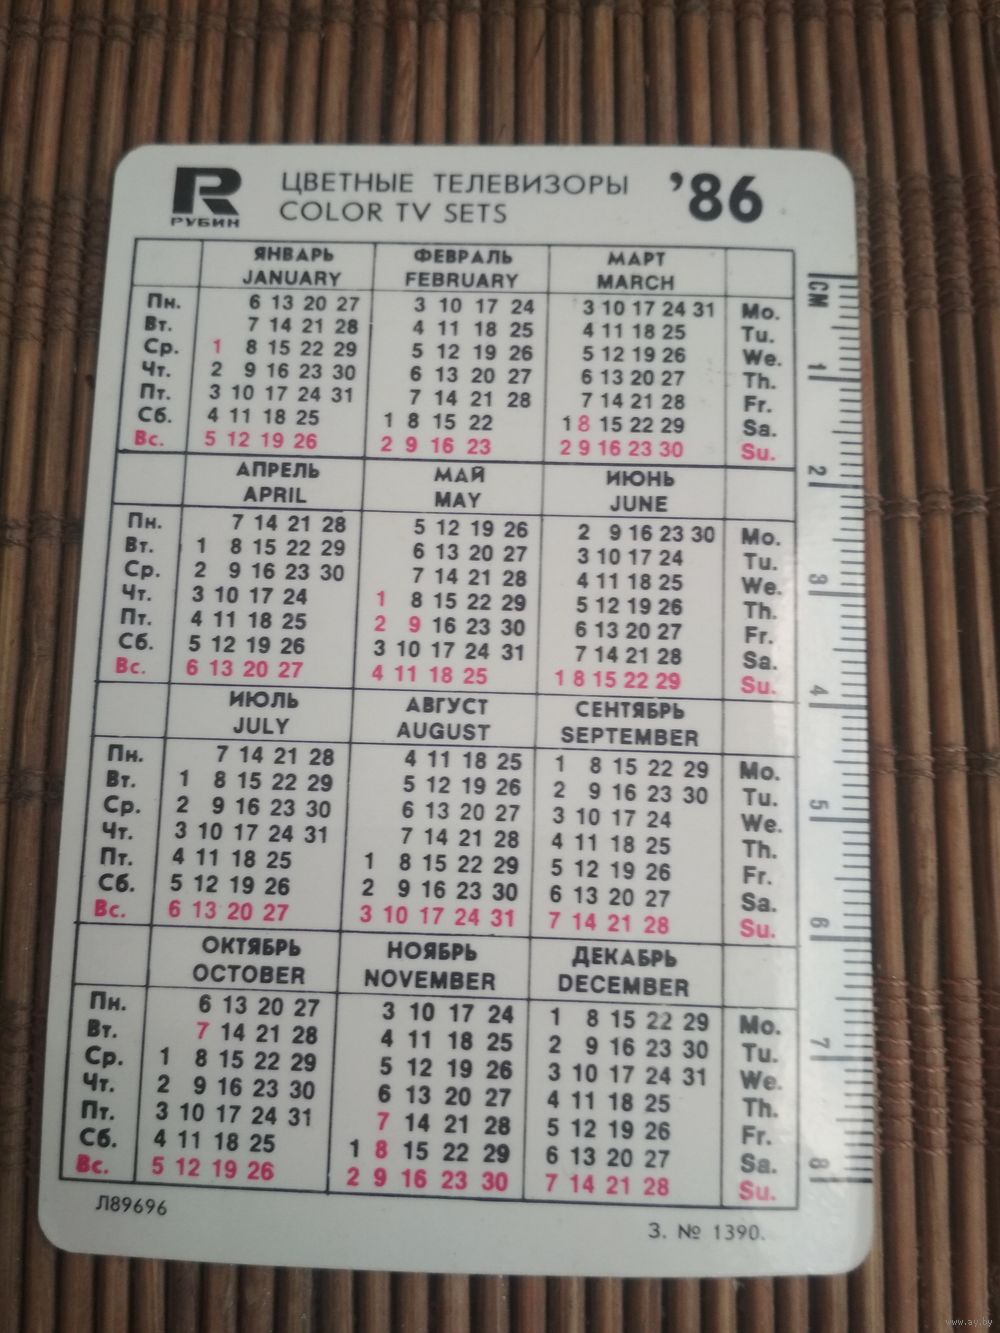 РУБИН
ЦВЕТНЫЕ ТЕЛЕВИЗОРЫ '86
COLOR TV SETS
ЯНВАРЬ ФЕВРАЛЬ МАРТ
JANUARY FEBRUARY MARCH
Пн. 6 13 20 27 3 10 17 24 3 10 17 24 31 Mo.
Вт. 7 14 21 28 4 11 18 25 4 11 18 25 Tu.
Ср. 1 8 15 22 29 5 12 19 26 5 12 19 26 We.
Чт. 2 9 16 23 30 6 13 20 27 6 13 20 27 Th.
Пт. 3 10 17 24 31 7 14 21 28 7 14 21 28 Fr.
Сб. 4 11 18 25 1 8 15 22 1 8 15 22 29 Sa.
Вс. 5 12 19 26 2 9 16 23 2 9 16 23 30 Su.
АПРЕЛЬ МАЙ ИЮНЬ
APRIL MAY JUNE
Пн. 7 14 21 28 5 12 19 26 2 9 16 23 30 Mo.
Вт. 1 8 15 22 29 6 13 20 27 3 10 17 24 Tu.
Ср. 2 9 16 23 30 7 14 21 28 4 11 18 25 We.
Чт. 3 10 17 24 1 8 15 22 29 5 12 19 26 Th.
Пт. 4 11 18 25 2 9 16 23 30 6 13 20 27 Fr.
Сб. 5 12 19 26 3 10 17 24 31 7 14 21 28 Sa.
Вс. 6 13 20 27 4 11 18 25 1 8 15 22 29 Su.
ИЮЛЬ АВГУСТ СЕНТЯБРЬ
JULY AUGUST SEPTEMBER
Пн. 7 14 21 28 4 11 18 25 1 8 15 22 29 Mo.
Вт. 1 8 15 22 29 5 12 19 26 2 9 16 23 30 Tu.
Ср. 2 9 16 23 30 6 13 20 27 3 10 17 24 We.
Чт. 3 10 17 24 31 7 14 21 28 4 11 18 25 Th.
Пт. 4 11 18 25 1 8 15 22 29 5 12 19 26 Fr.
Сб. 5 12 19 26 2 9 16 23 30 6 13 20 27 Sa.
Вс. 6 13 20 27 3 10 17 24 31 7 14 21 28 Su.
ОКТЯБРЬ НОЯБРЬ ДЕКАБРЬ
OCTOBER NOVEMBER DECEMBER
Пн. 6 13 20 27 3 10 17 24 1 8 15 22 29 Mo.
Вт. 7 14 21 28 4 11 18 25 2 9 16 23 30 Tu.
Ср. 1 8 15 22 29 5 12 19 26 3 10 17 24 31 We.
Чт. 2 9 16 23 30 6 13 20 27 4 11 18 25 Th.
Пт. 3 10 17 24 31 7 14 21 28 5 12 19 26 Fr.
Сб. 4 11 18 25 1 8 15 22 29 6 13 20 27 Sa.
Вс. 5 12 19 26 2 9 16 23 30 7 14 21 28 Su.
Л89696
З. № 1390.
СМ 1 2 3 4 5 6 7 8
www.ay.by